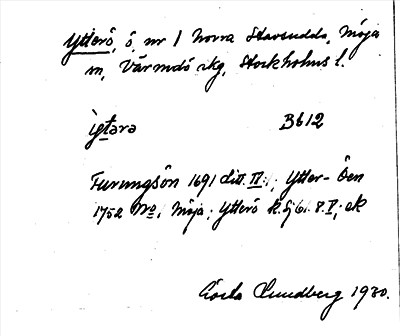 Ytterö, ö, nr 1 Norra Stavsudda, Möja
sn, Värmdö skg, Stockholms l.
B612
Furungsön 1691 Litt. ; Ytter-Öen
1752 No, Möja; Ytterö
Gösta Lundberg 1930.